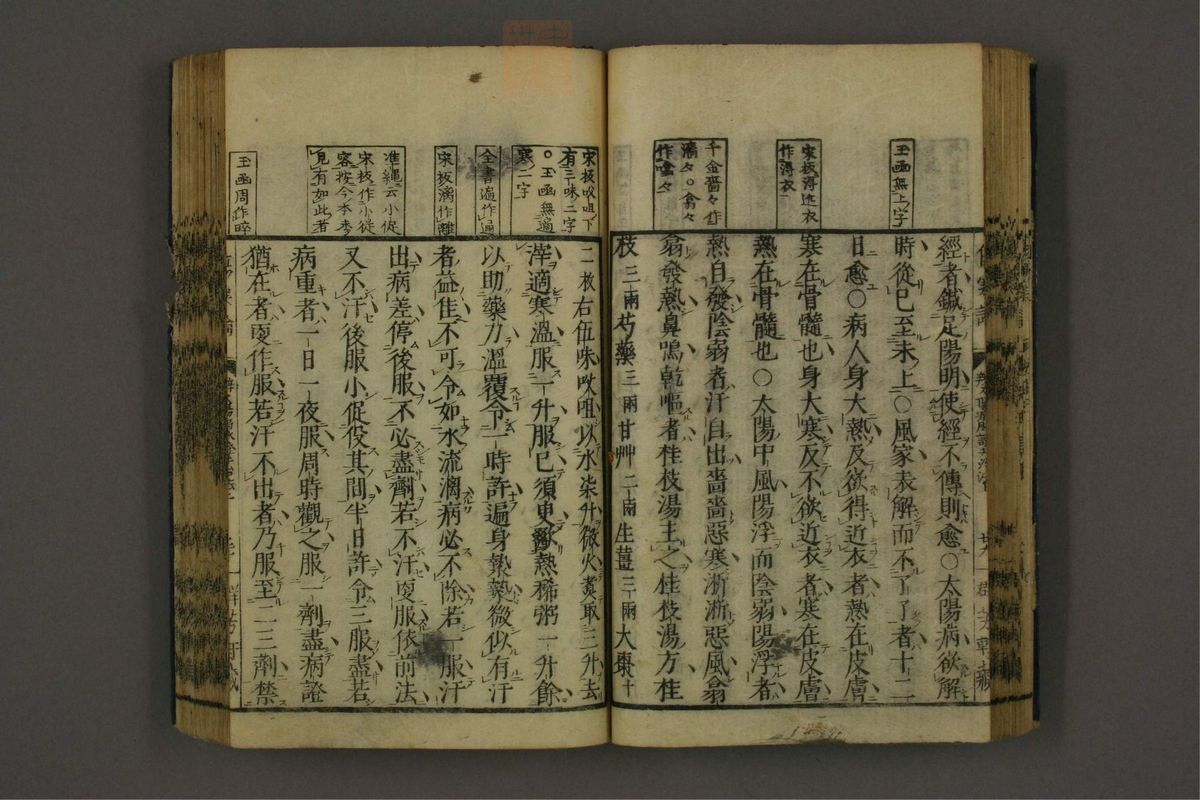 玉函無上字
宋板得近衣
作得衣
千金嗇々作
濇々○翕々
作噏々
經者鍼足陽明使經不傳則愈○太陽病欲解
時從巳至未上○風家表解而不了了者十二
日愈○病人身大熱反欲得近衣者熱在皮膚
寒在骨髓也身大寒反不欲近衣者寒在皮膚
熱在骨髓也○太陽中風陽浮而陰弱陽浮者
熱自發陰弱者汗自出嗇嗇惡寒淅淅惡風翕
翁發熱鼻鳴乾嘔者桂枝湯主之桂枝湯方桂
枝三兩芍藥三兩甘艸二兩生薑三兩大棗十
宋板㕮咀下
有三味二字
○玉函無適
寒二字
全書遍作通
宋板漓作離
准繩云小促
宋板作小從
容按今本未
見有如此者
玉函周作晬
二枚右伍味㕮咀以水柒升微火煑取三升去
滓適寒溫服一升服已須臾歠熱稀粥一升餘
以助藥力溫覆令一時許遍身漐漐微似有汗
者益佳不可令如水流漓病必不除若一服汗
出病差停後服不必盡劑若不汗更服依前法
又不汗後服小促役其間半日許令三服盡若
病重者一日一夜服周時觀之服一劑盡病證
猶在者更作服若汗不出者乃服至二三劑禁